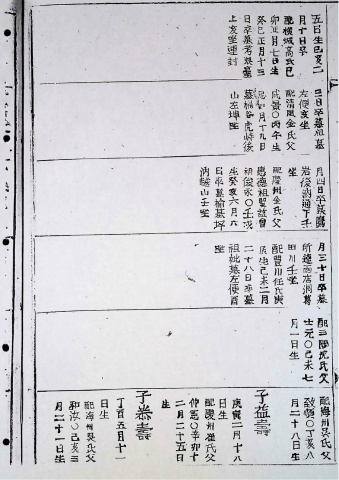 五日生己亥二
月十日卒
配橫城高氏己
卯正月七日生
癸巳正月十三
日卒墓考墓
上亥坐連封
三日卒墓祖墓
左便亥坐
配淸風金氏父
成〇丙午生
己 月十九日
墓楠谷虎峙後
山左埠坐
月四日卒墓
岩後 通下壬
坐
配慶州金氏父
應德祖 曾
祖俊永〇壬戌
生癸亥六月八
日卒墓 墓坪
山壬坐
月三十日卒墓
所 店洞葛
田川壬坐
配豊川任氏庚
辰生己未二月
二十八日卒墓
祖妣墓左便酉
坐
配 氏父
士元〇己未七
月一日生
配海州吳氏父
致 〇丁亥八
月二十八日生
子益壽
庚寅二月十八
日生
配慶州崔氏父
仲 〇辛卯十
二月二十五日
生
子泰壽
丁酉五月十一
日生
配海州吳氏父
和汝〇己亥三
月二十一日生